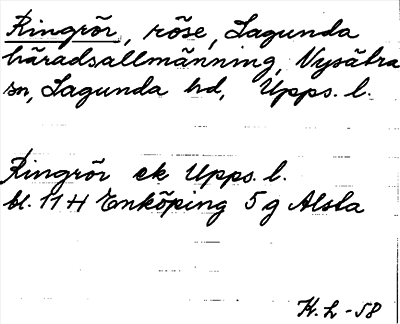 Ringrör, röse, Lagunda
häradsallmänning, Nysätra
sn, Lagunda hd, Upps. l.
Ringrör ek Upps. l.
bl. 11 H Enköping 5 g Alsta
H.L -58